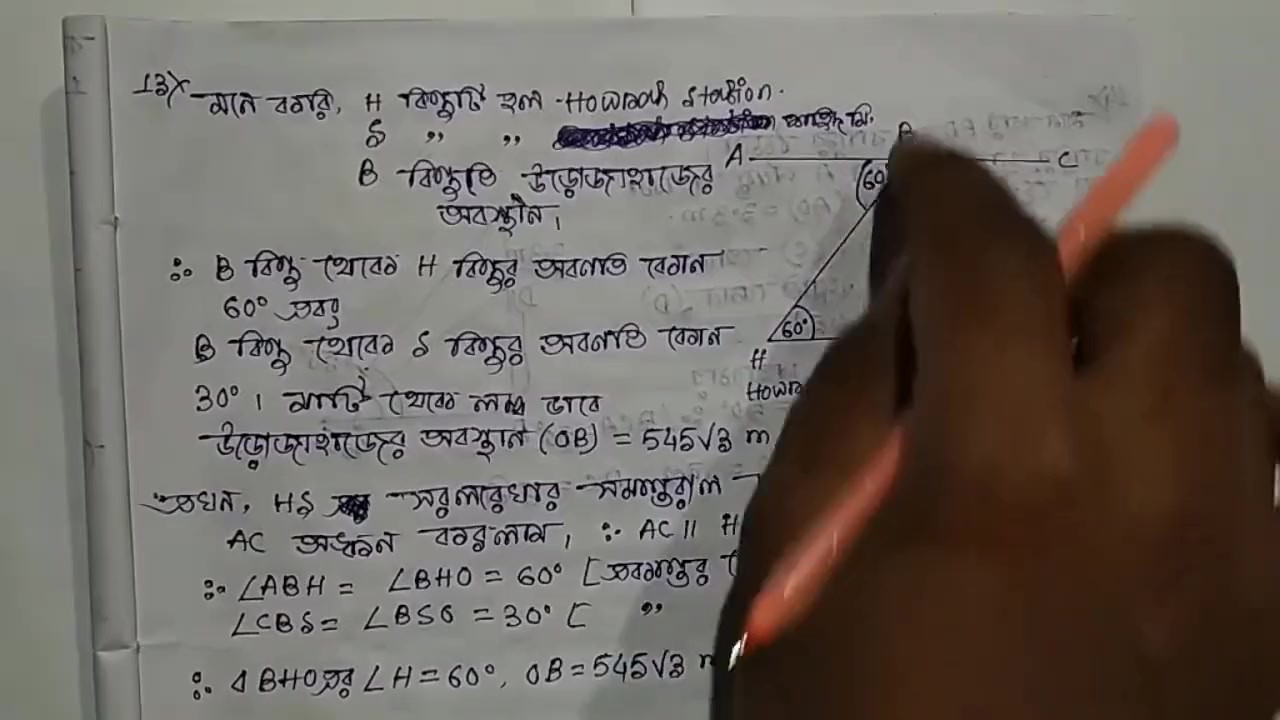 13) মনে করি, H বিন্দুটি হল Howrah Station.
S ,, ,,
B বিন্দুতি উড়োজাহাজের
অবস্থান।
A C
60°
∴ B বিন্দু থেকে H বিন্দুর অবনতি কোন
60° এবং
60°
B বিন্দু থেকে S বিন্দুর অবনতি কোন
H
30°। মাটি থেকে লম্ব ভাবে
উড়োজাহাজের অবস্থান (OB) = 545√3 m
এখন, HS সরলরেখার সমান্তরাল
AC অঙ্কন করলাম। ∴ AC || H
∴ ∠ABH = ∠BHO = 60° [একান্তর
∠CBS = ∠BSO = 30° [ ,,
∴ ΔBHO এর ∠H = 60°, OB = 545√3 m